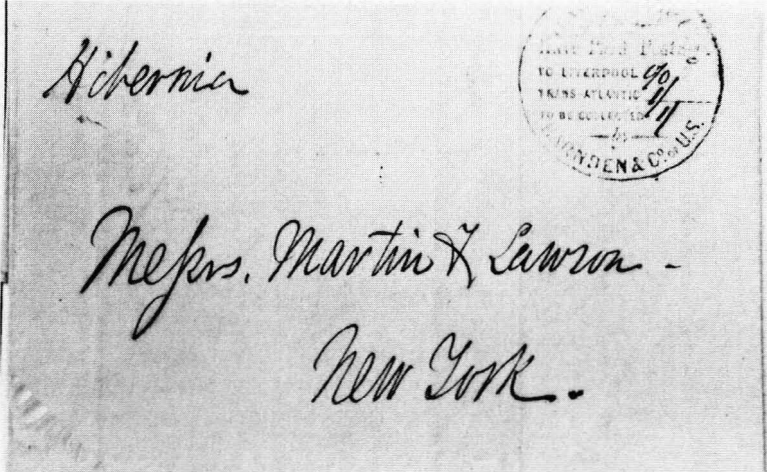 Hibernia
Have Paid Postage
TO LIVERPOOL
TRANS-ATLANTIC 1/
TO BE COLLECTED 1/
by
HARNDEN & Co. of U.S.
Messrs. Martin & Lawson -
New York.